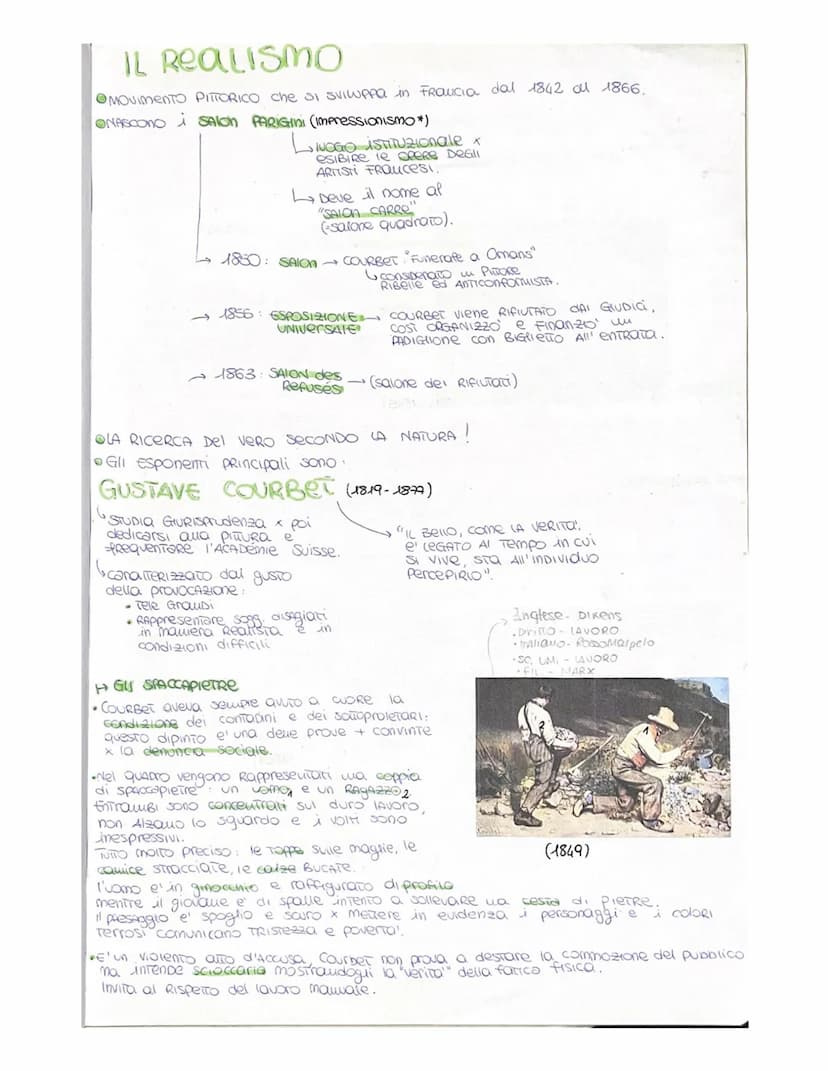 IL REALISMO
MOVIMENTO PITTORICO che SI SVILUPPA in FRANCIA dal 1842 al 1866.
NASCONO i SALON PARIGINI (IMPRESSIONISMO*)
LUOGO ISTITUZIONALE x
ESIBIRE le OPERE DEGLI
ARTISTI FRANCESI.
DEVE il nome al
"SALON CARRE"
(=salone quadrato).
1850: SALON → COURBET "Funerale a Ornans"
CONSIDERATO un PITTORE
RIBELLE ED ANTICONFORMISTA.
→ 1856: ESPOSIZIONE → COURBET VIENE RIFIUTATO DAI GIUDICI,
UNIVERSALE COSÌ ORGANIZZO' E FINANZIO' un
PADIGLIONE CON BIGLIETTO All' ENTRATA.
→ 1863: SALON des → (salone dei RIFIUTATI)
REFUSÉS
LA RICERCA Del VERO SECONDO LA NATURA!
Gli ESPONENTI PRINCIPALI SONO:
GUSTAVE COURBET (1819-1877)
STUDIA GIURISPRUDENZA x poi
dedicarsi alla PITTURA e
frequentare l'ACADÉMIE SUISSE.
"IL BELLO, COME LA VERITA',
E' LEGATO AL TEMPO IN CUI
SI VIVE, STA All'INDIVIDUO
PERCEPIRLO".
CARATTERIZZATO dal GUSTO
della PROVOCAZIONE:
• TELE GRANDI
• RAPPRESENTARE SOGG. DISAGIATI
in MANIERA REALISTA E in
CONDIZIONI DIFFICILI
Inglese - DIKENS
• DIRITTO - LAVORO
• ITALIANO - ROSSO MALPELO
• SC. UM. - LAVORO
• FIL - MARX
→ Gli SPACCAPIETRE
• COURBET aveva sempre avuto a cuore la
condizione dei contadini e dei sottoproletari:
questo dipinto e' una delle prove + convinte
x la denuncia sociale.
• Nel QUADRO vengono RAPPRESENTATI una coppia
di SPACCAPIETRE: un uomo 1 e un RAGAZZO 2.
Entrambi sono concentrati sul duro lavoro,
non Alzano lo sguardo e i VOLTI sono
inespressivi.
TUTTO MOLTO PRECISO: le TOPPE sulle maglie, le
camice STRACCIATE, le calze BUCATE.
l'uomo e' in ginocchio e raffigurato di profilo
mentre il giovane e' di spalle intento a sollevare una cesta di PIETRE.
il PAESAGGIO e' spoglio e scuro x mettere in evidenza i personaggi e i colori
TERROSI comunicano TRISTEZZA e POVERTA'.
• E' un VIOLENTO atto d'ACCUSA, COURBET non prova a destare la commozione del pubblico
ma intende scioccarlo mostrandogli la "verità" della fatica fisica.
Invita al RISPETTO del lavoro manuale.
1
2
(1849)